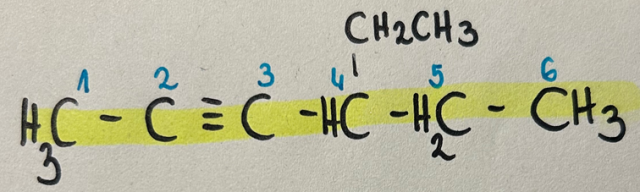 CH2CH3
1 2 3 4 5 6
H3C - C ≡ C - HC - H2C - CH3